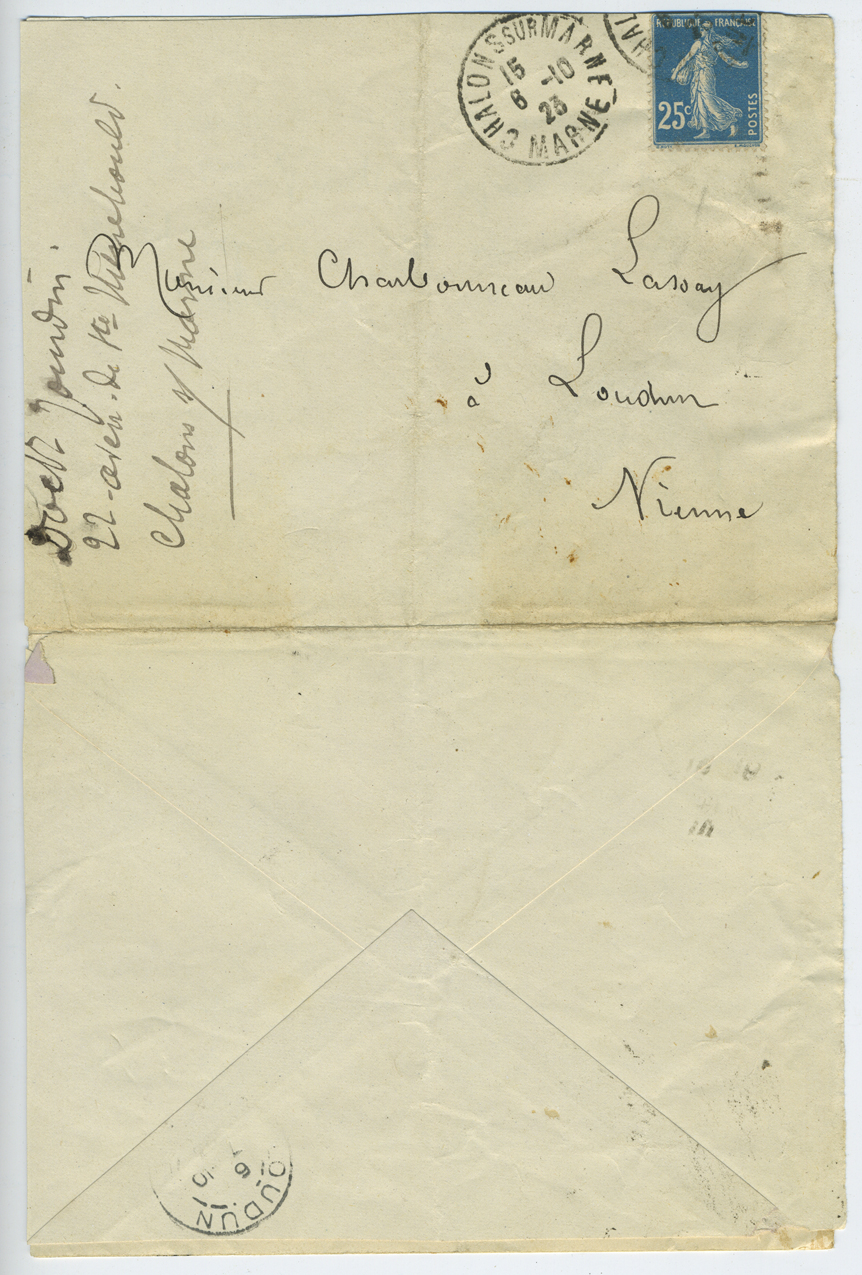 CHALONS SUR MARNE
15
6 -10
23
MARNE
CHAL
REPUBLIQUE FRANCAISE
25c
POSTES
Monsieur Charbonneau Lassay
à Loudun
Vienne
Doctr
22 - aven. de Ste Menehould.
Chalons s/ Marne
OUDUN
6
10